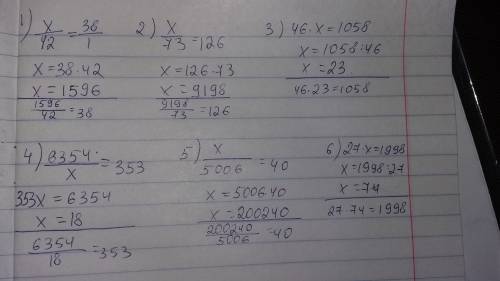 1) x/42 = 38/1
x = 38·42
x = 1596
1596/42 = 38
2) x/73 = 126
x = 126·73
x = 9198
9198/73 = 126
3) 46·x = 1058
x = 1058:46
x = 23
46·23 = 1058
4) 6354/x = 353
353x = 6354
x = 18
6354/18 = 353
5) x/5006 = 40
x = 500640
x = 200240
200240/5006 = 40
6) 27·x = 1998
x = 1998:27
x = 74
27·74 = 1998